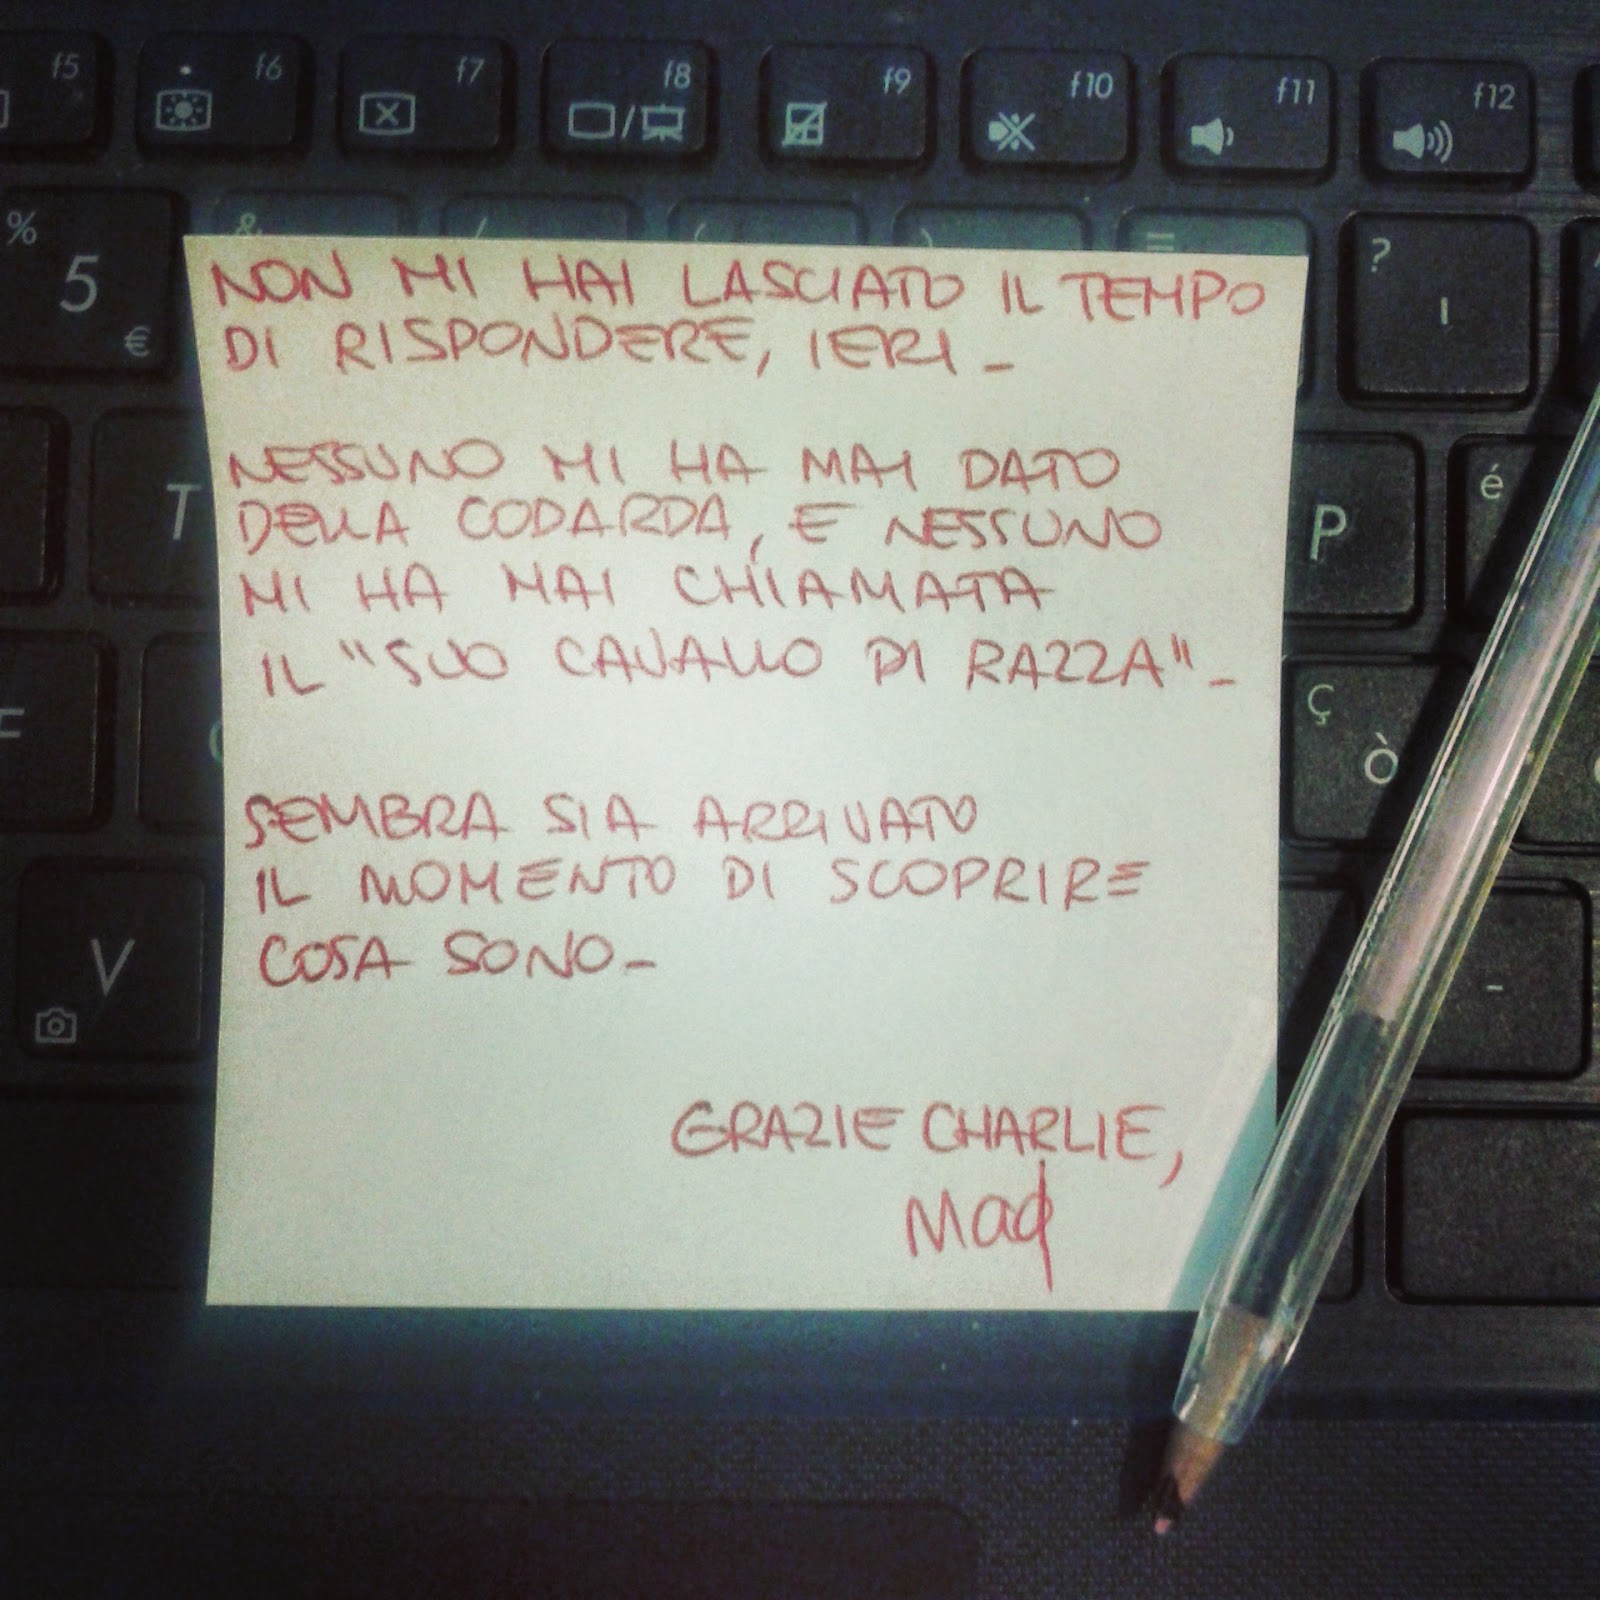 f5 f6 f7 f8 f9 f10 f11 f12
% 5 € & / ( ) = ? '
NON MI HAI LASCIATO IL TEMPO
DI RISPONDERE, IERI_
NESSUNO MI HA MAI DATO
DELLA CODARDA, E NESSUNO
MI HA MAI CHIAMATA
IL "SUO CAVALLO DI RAZZA"_
SEMBRA SIA ARRIVATO
IL MOMENTO DI SCOPRIRE
COSA SONO_
GRAZIE CHARLIE,
Mad
T P é
F ç ò
V -